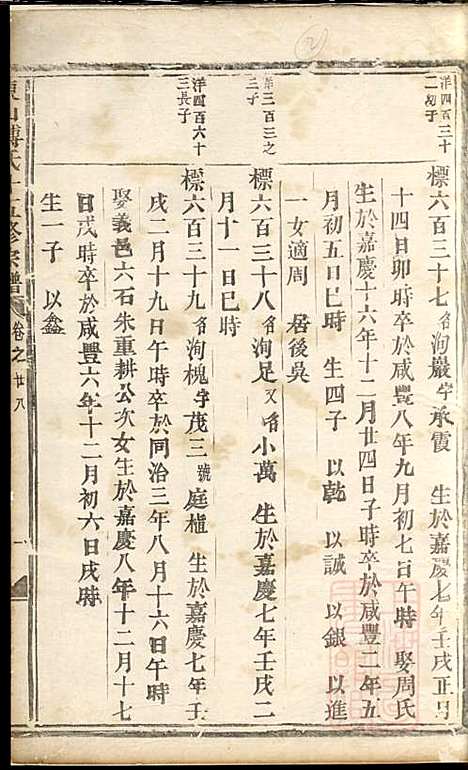 洋四百三十
二初子
標六百三十七 名洵巖字承霞 生於嘉慶七年壬戌正月
十四日卯時卒於咸豐八年九月初七日午時 娶周氏
生於嘉慶十六年十二月廿四日子時卒於咸豐二年五
月初五日巳時 生四子 以乾 以誠 以銀 以進
一女適周 居後吳
三百三之
三子
標六百三十八 名洵足又名小萬 生於嘉慶七年壬戌二
月十一日巳時
洋四百六十
三長子
標六百三十九 名洵槐字茂三號庭植 生於嘉慶七年壬
戌二月十九日午時卒於同治三年八月十六日午時
娶義邑六石朱重耕公次女生於嘉慶八年十二月十七
日戌時卒於咸豐六年十二月初六日戌時
生一子 以鑫
氏十五修宗譜 卷之廿八 一
2